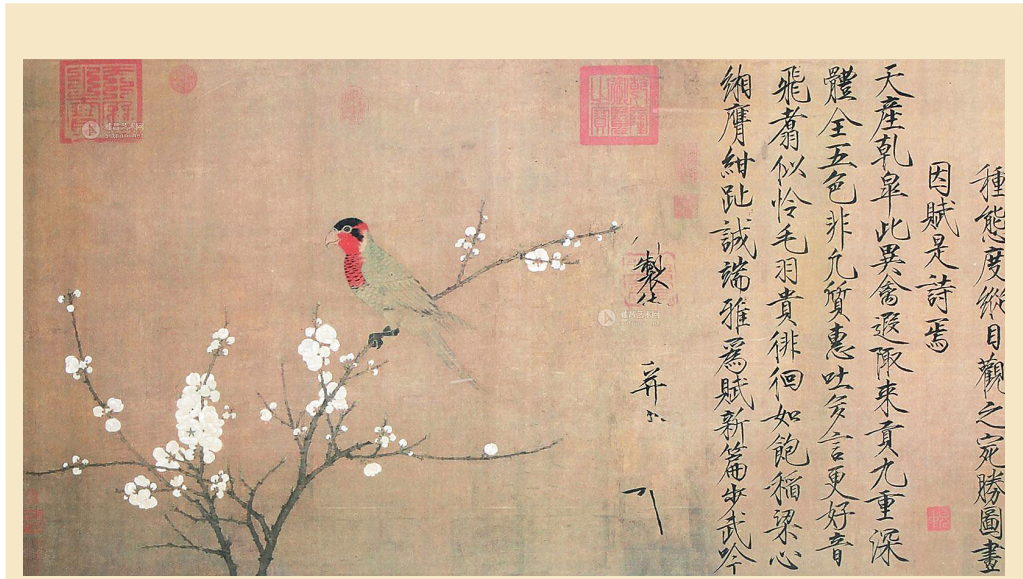 種態度縱目觀之宛勝圖畫
因賦是詩焉
天產乾皋此異禽遐陬來貢九重深
體全五色非凡質惠吐多言更好音
飛翥似憐毛羽貴徘徊如飽稻粱心
緗膺紺趾誠端雅為賦新篇步武吟
製
并